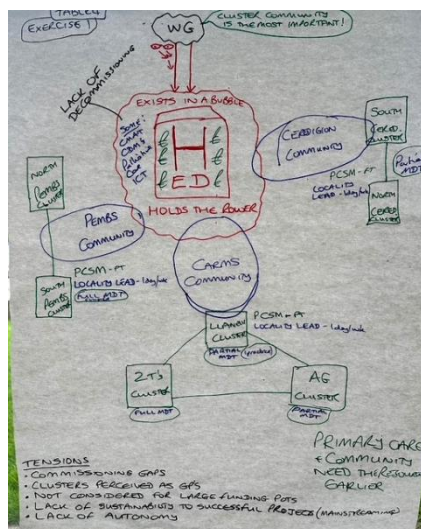 TABLE 4
EXERCISE 1
WG
CLUSTER COMMUNITY
IS THE MOST IMPORTANT!
LACK OF
DECOMMISSIONING
EXISTS IN A BUBBLE
Some:
CMAT
CDM's
Palliative
Care
ICT
£ £
£ H £
£ ED £
HOLDS THE POWER
CEREDIGION
COMMUNITY
SOUTH
CERED.
CLUSTER
Partial
MDT
PCSM-FT
LOCALITY
LEAD-1day/wk
NORTH
CERED
CLUSTER
NORTH
PEMBS
CLUSTER
PEMBS
COMMUNITY
SOUTH
PEMBS
CLUSTER
PCSM-FT
LOCALITY LEAD-1day/wk
FULL MDT
CARMS
COMMUNITY
LLANELLI
CLUSTER
PCSM-FT
LOCALITY LEAD-1day/wk
PARTIAL MDT
2T's
CLUSTER
FULL MDT
AG
CLUSTER
PARTIAL
MDT
PRIMARY CARE
& COMMUNITY
NEED THE RESOURCE
EARLIER
TENSIONS
• COMMISSIONING GAPS
• CLUSTERS PERCEIVED AS GPS
• NOT CONSIDERED FOR LARGE FUNDING POTS
• LACK OF SUSTAINABILITY TO SUCCESSFUL PROJECTS (MAINSTREAMING)
• LACK OF AUTONOMY